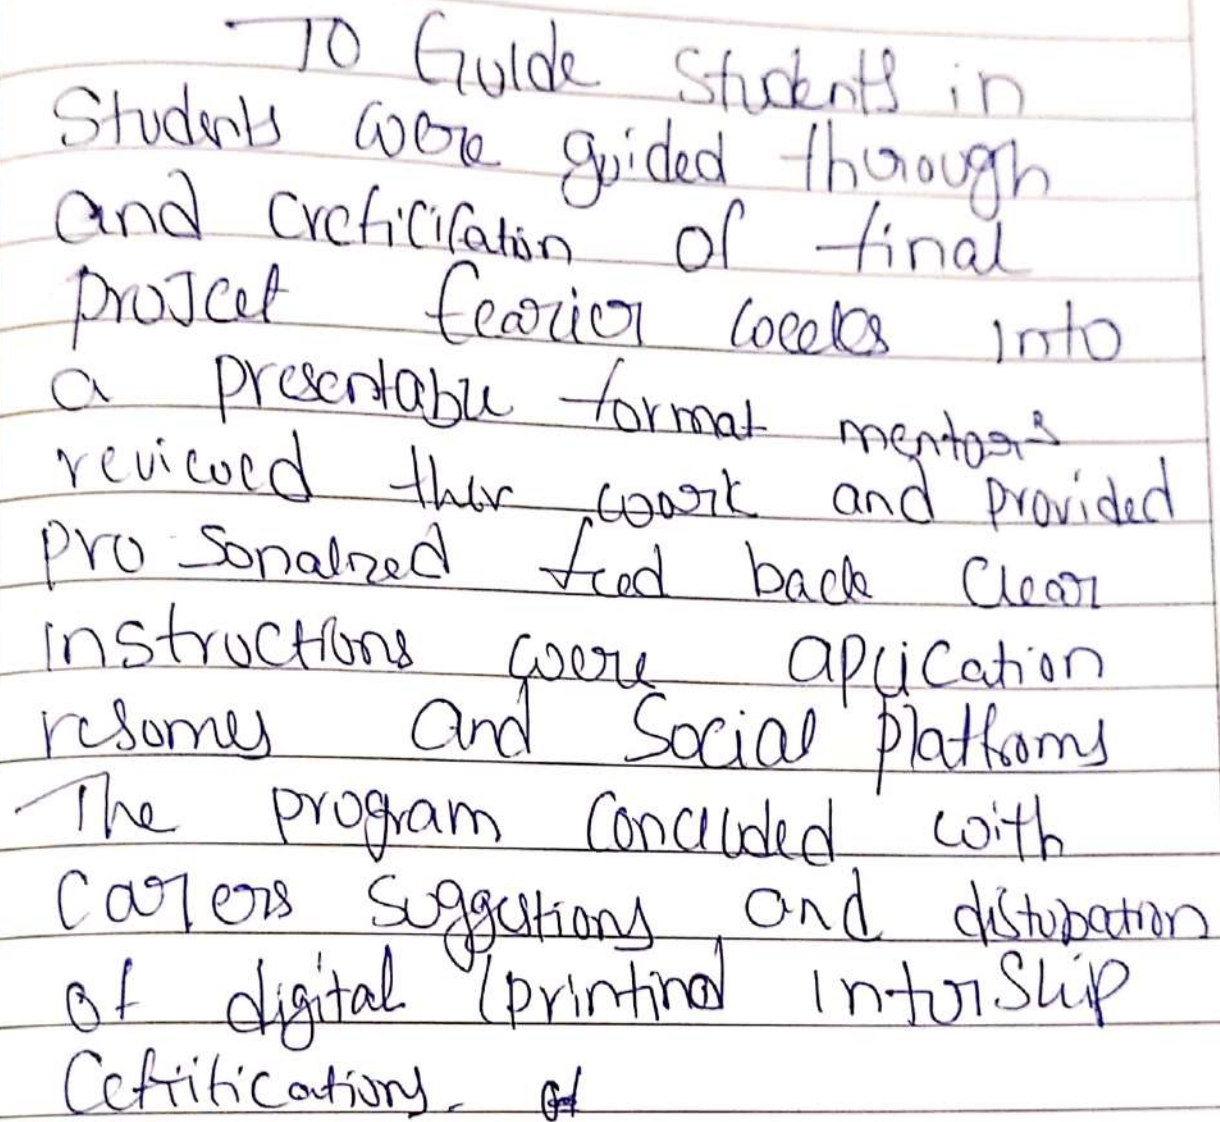 To Guide Students in
Students were guided thorough
and creficification of final
project fearier weeks into
a presentable format mentors
reviewed thir work and provided
pro sonalzed feed back Clear
instructions were aplication
resomes and Social platforms
The program Concluded with
Careers suggestions and distubation
of digital (printing) IntorShip
Cetificications.